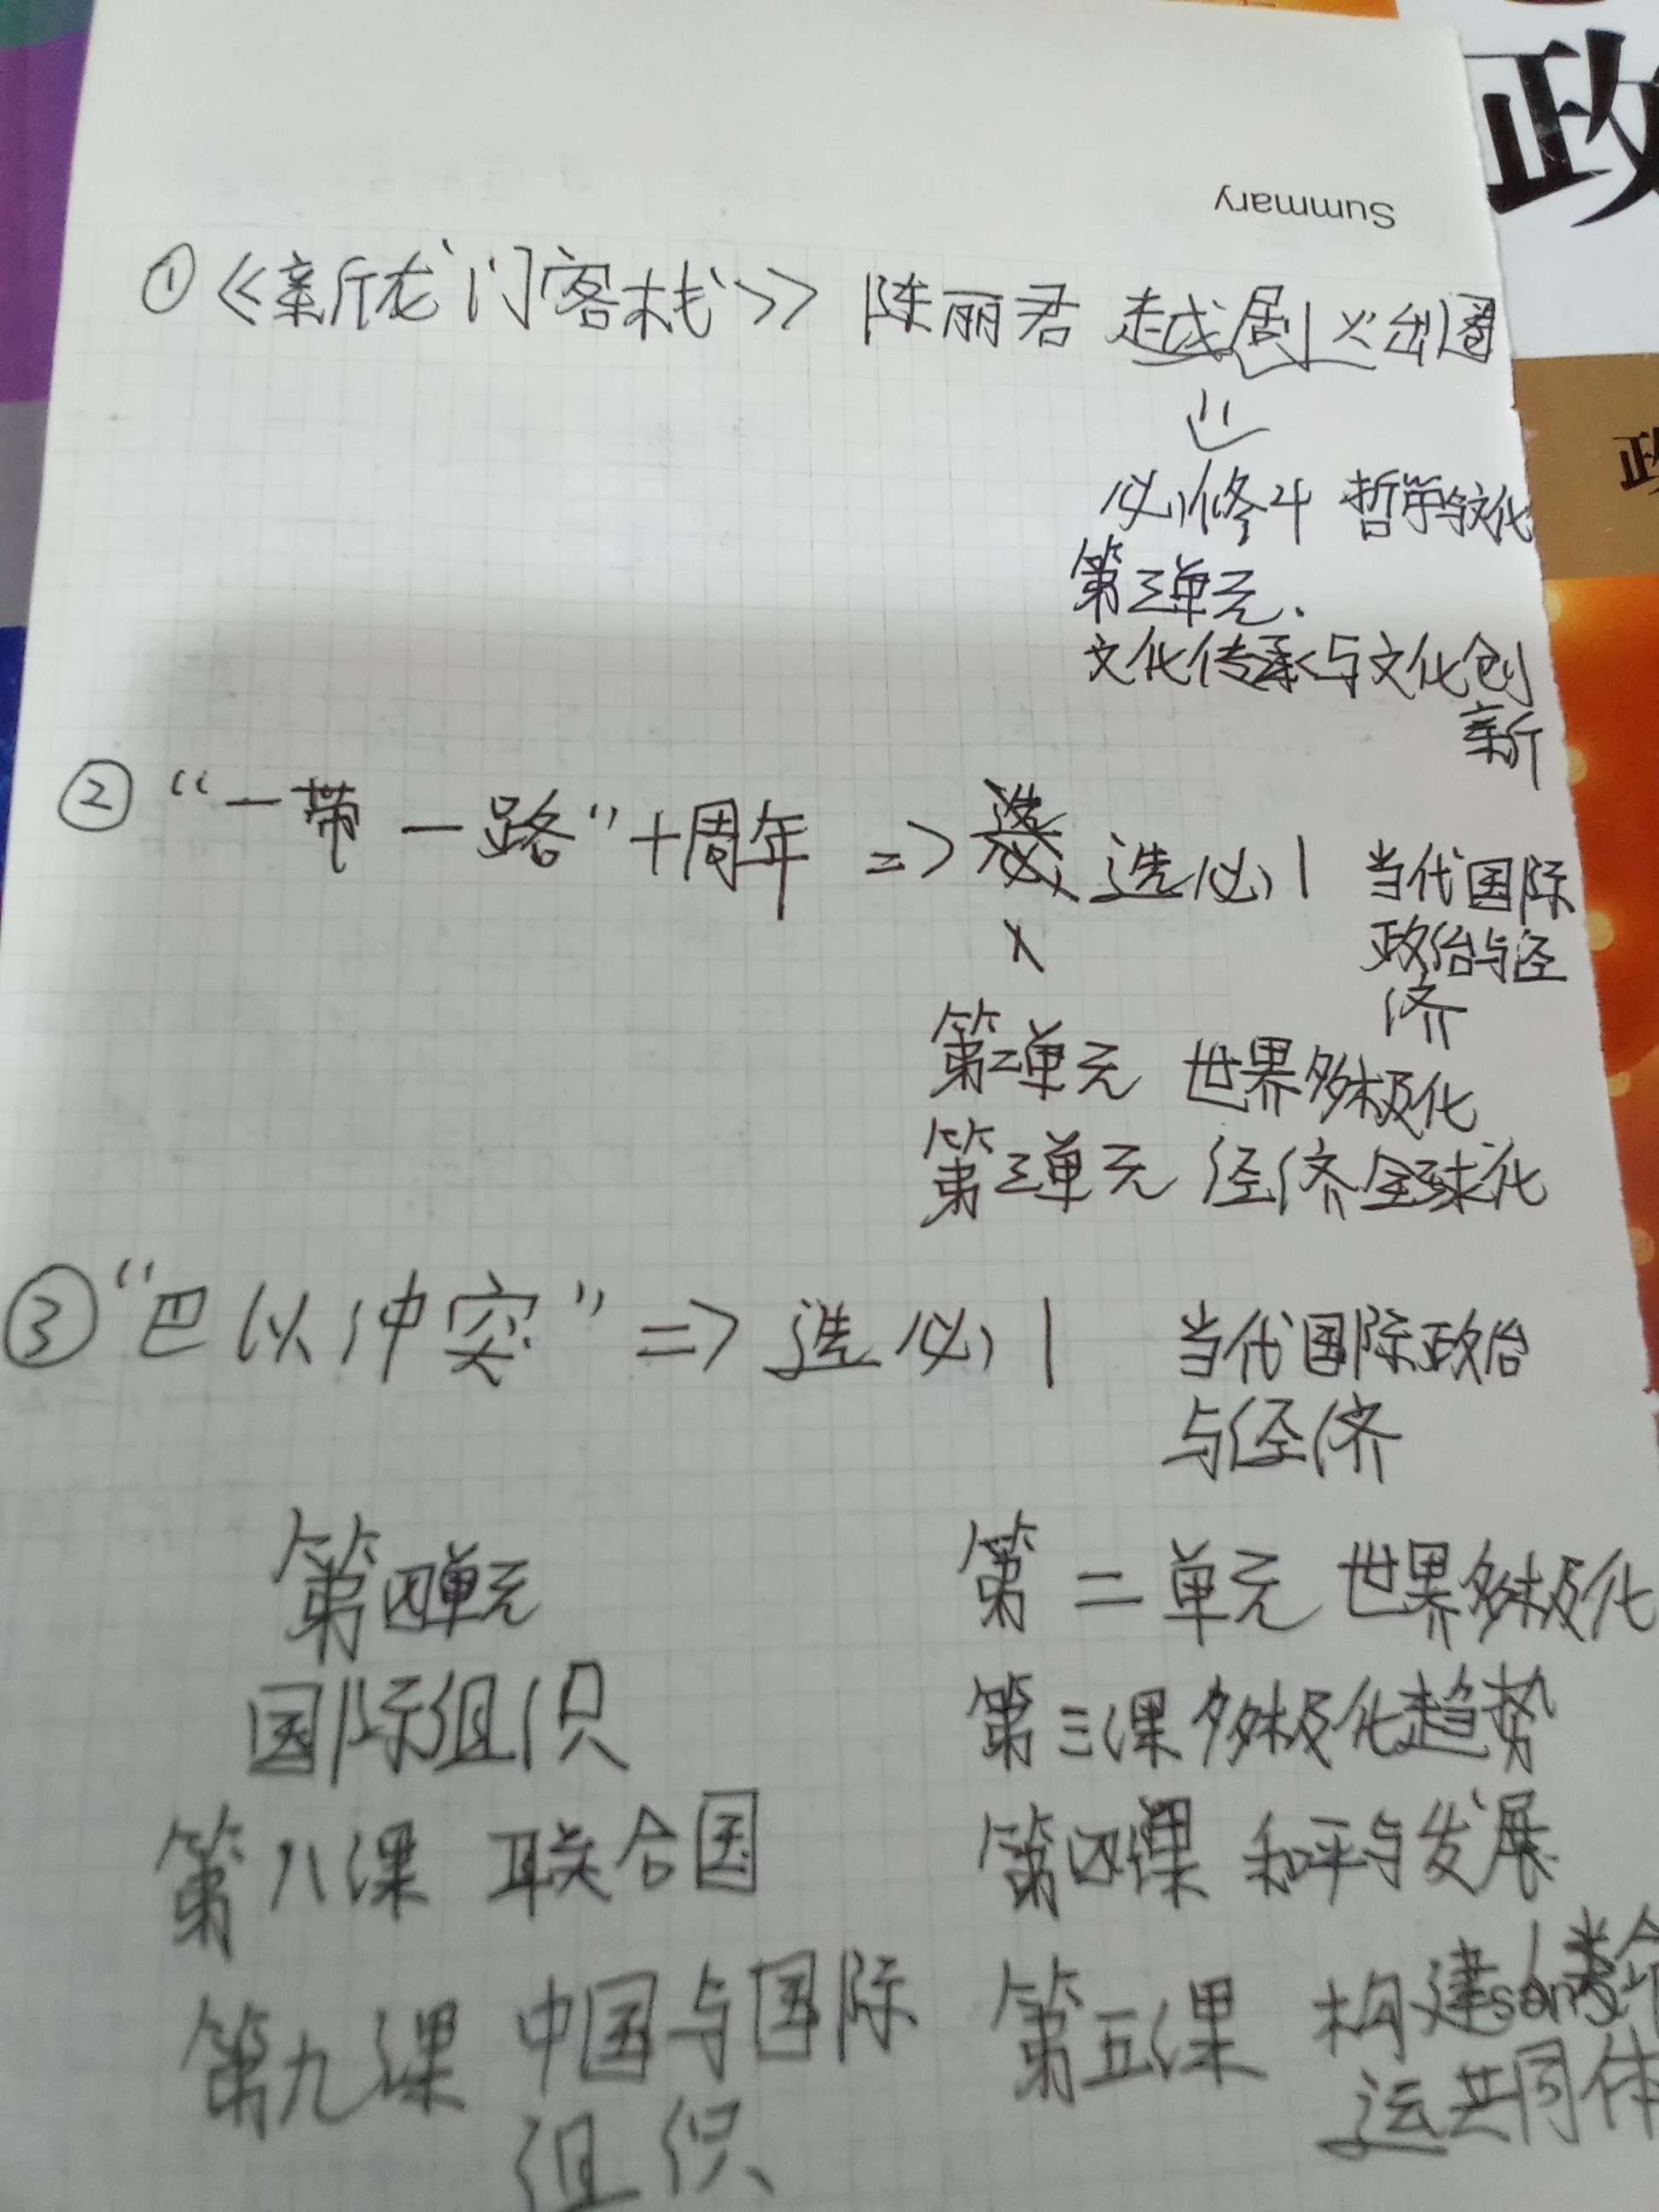 政
政
Summary
①《新龙门客栈》 陈丽君 越剧火出圈
⇓
必修4 哲学与文化
第三单元.
文化传承与文化创
新
②“一带一路”十周年 => 选必1 当代国际
政治与经
济
第二单元 世界多极化
第三单元 经济全球化
③“巴以冲突” => 选必1 当代国际政治
与经济
第四单元
国际组织
第八课 联合国
第九课 中国与国际
组织
第二单元 世界多极化
第三课 多极化趋势
第四课 和平与发展
第五课 构建人类命
运共同体